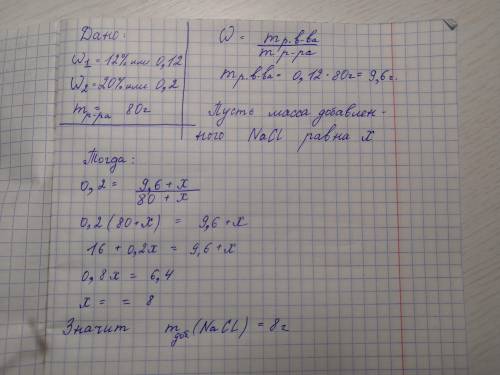 Дано:
ω₁ = 12% или 0,12
ω₂ = 20% или 0,2
m р-ра = 80г
ω = m р.в-ва / m р-ра
m р.в-ва = 0,12 · 80г = 9,6г.
Пусть масса добавлен-
ного NaCl равна x
Тогда:
0,2 = 9,6 + x / 80 + x
0,2 (80+x) = 9,6 + x
16 + 0,2x = 9,6 + x
0,8x = 6,4
x = = 8
Значит m доб (NaCl) = 8г